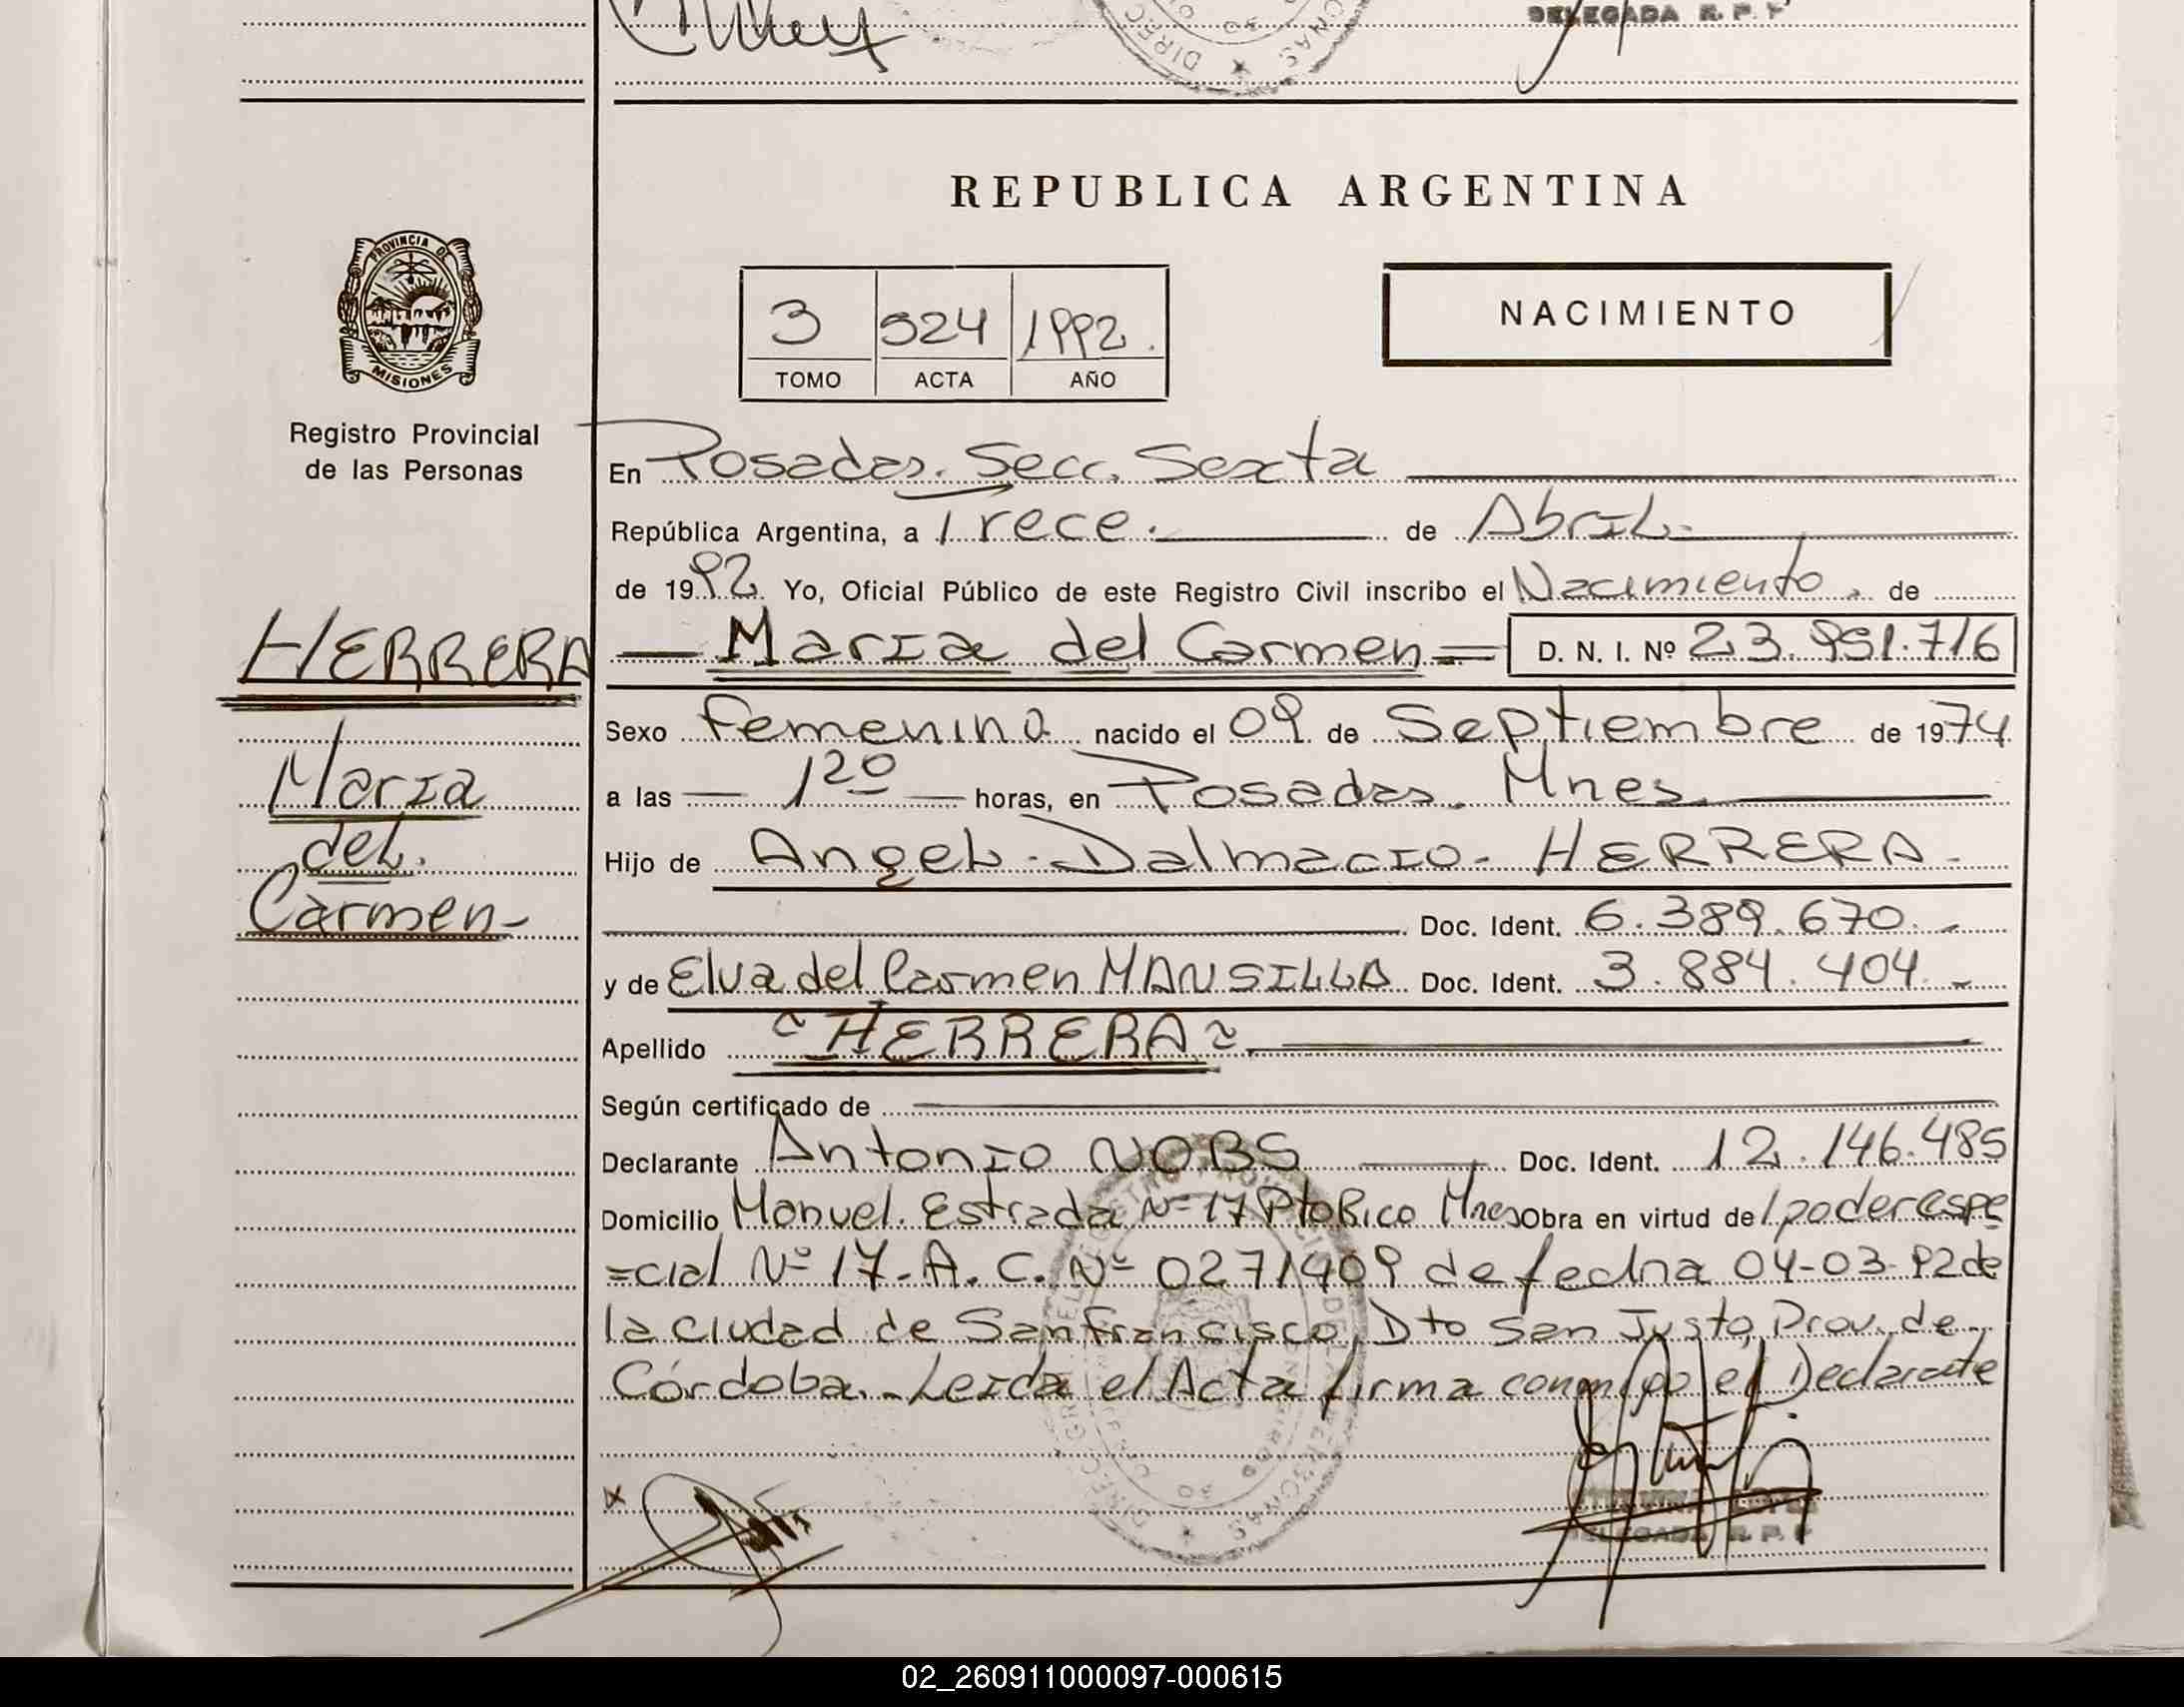 DELEGADA R. P. P
REPUBLICA ARGENTINA
PROVINCIA DE
MISIONES
Registro Provincial
de las Personas
3 524 1992.
TOMO ACTA AÑO
NACIMIENTO
HERRERA
Maria
del.
Carmen-
En Posadas. Secc. Sexta
República Argentina, a Trece. de Abril.
de 1992. Yo, Oficial Público de este Registro Civil inscribo el Nacimiento, de
Maria del Carmen = D. N. I. Nº 23.951.716
Sexo Femenino nacido el 09 de Septiembre de 1974
a las — 1 20 — horas, en Posadas. Mnes.
Hijo de Angel. Dalmacio. HERRERA.
Doc. Ident. 6.389.670.-
y de Elva del Carmen MANSILLA Doc. Ident. 3.884.404.-
Apellido "HERRERA"
Según certificado de
Declarante Antonio NOBS Doc. Ident. 12.146.485
Domicilio Manuel. Estrada Nº 17 Pto Rico Mnes Obra en virtud del poder espe
=cial Nº 17. A. C. Nº 0271409 de fecha 04-03-92 de
la ciudad de San Francisco, Dto San Justo, Prov. de
Córdoba.- Leida el Acta firma conmigo el Declarante
DELEGADA R. P. P
02_260911000097-000615